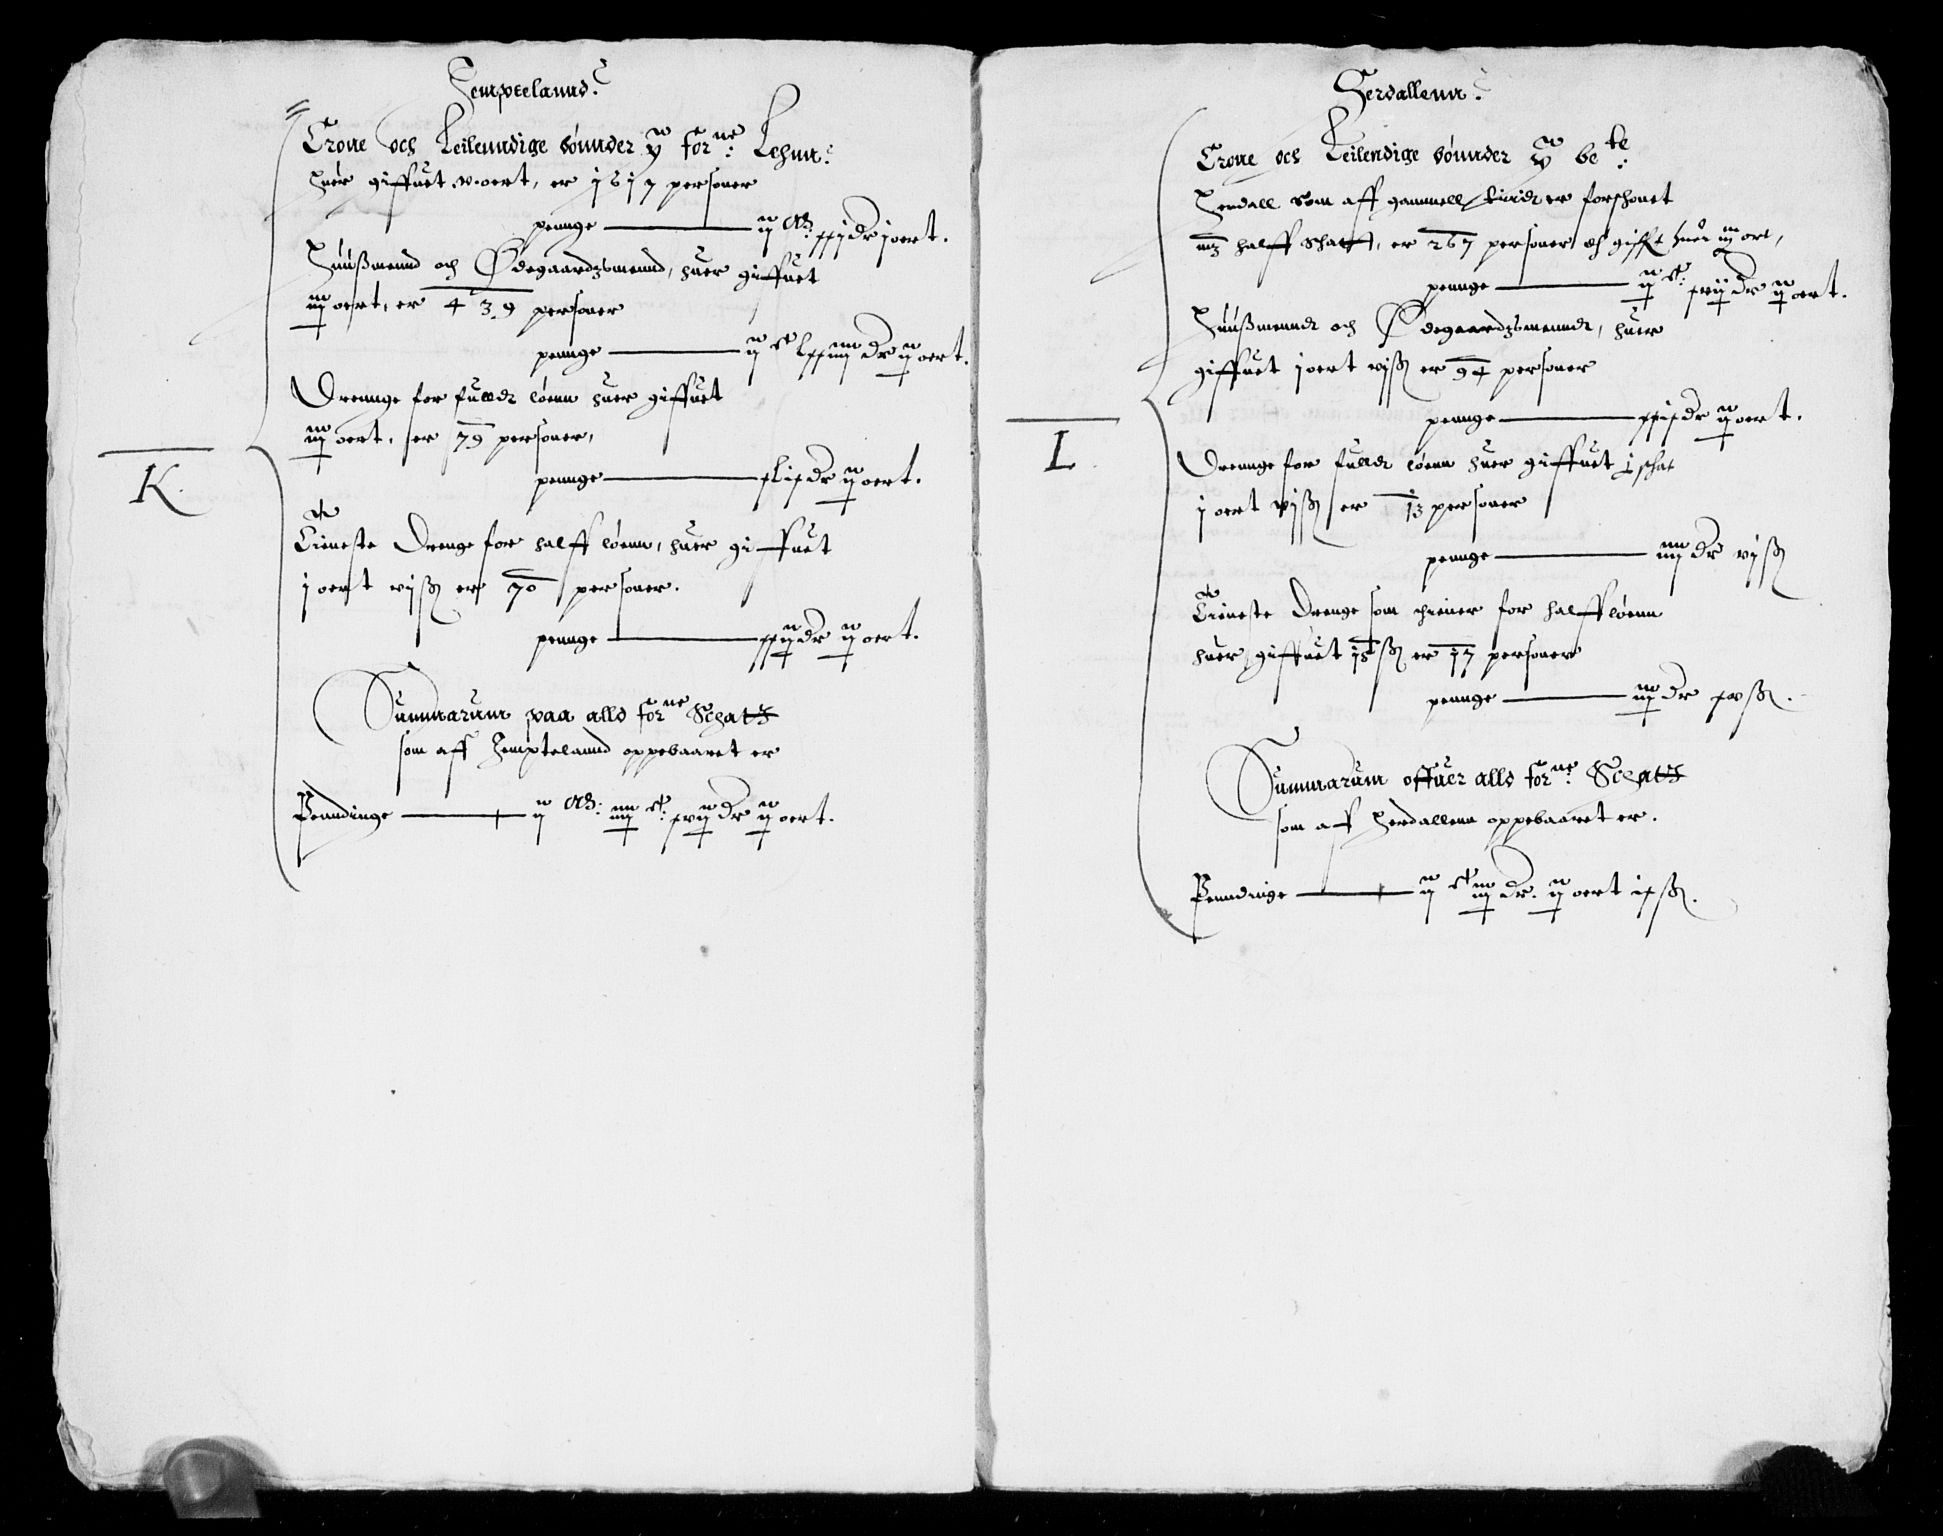 Jempteland
Crone och Leilenndige bøunder y forne: Lehnn
huer giffuet v oert, er 1617 personer
penge — ij M: xxj dr j oert.
Huußmennd och Ødegaardzmennd, huer giffuet
iij oert, er 439 personer
penge — ij C lxxiiij dr ij oert.
Drennge for fulde løenn huer giffuet
iij oert, er 79 personer,
penge — xlix dr ij oert.
K.
Tieneste Drenge for halff løenn, huer giffuet
j oert vj ß er 70 personer.
penge — xxij dr ij oert.
Summarum paa alld forne Schatz
som aff Jempteland oppebaaret er
Penndinge — ij M: iiij C: xvij dr ij oert.
Herdallenn
Crone och Leilendige bønnder y bete:
Herdall som aff gammell tiid er forschonet
mz halff Schatt, er 267 personer, och gifft huer iij ort,
penge — ij C: xvij dr ij oert.
Huußmennd och Ødegaardzmennd, huer
giffuet j oert vj ß er 94 personer
penge — xxix dr ij oert.
L
Drennge for fulde løenn huer giffuet j schat
j oert vj ß er 13 personer
penge — iiij dr vj ß
Tieneste Drenge som thiener for halff løenn
huer giffuet 15 ß er 17 personer
penge — iij dr xv ß.
Summarum offuer alld forne: Schatz
som aff Herdallenn oppebaaret er.
Penndinge — ij C iij dr. ij oert ix ß.